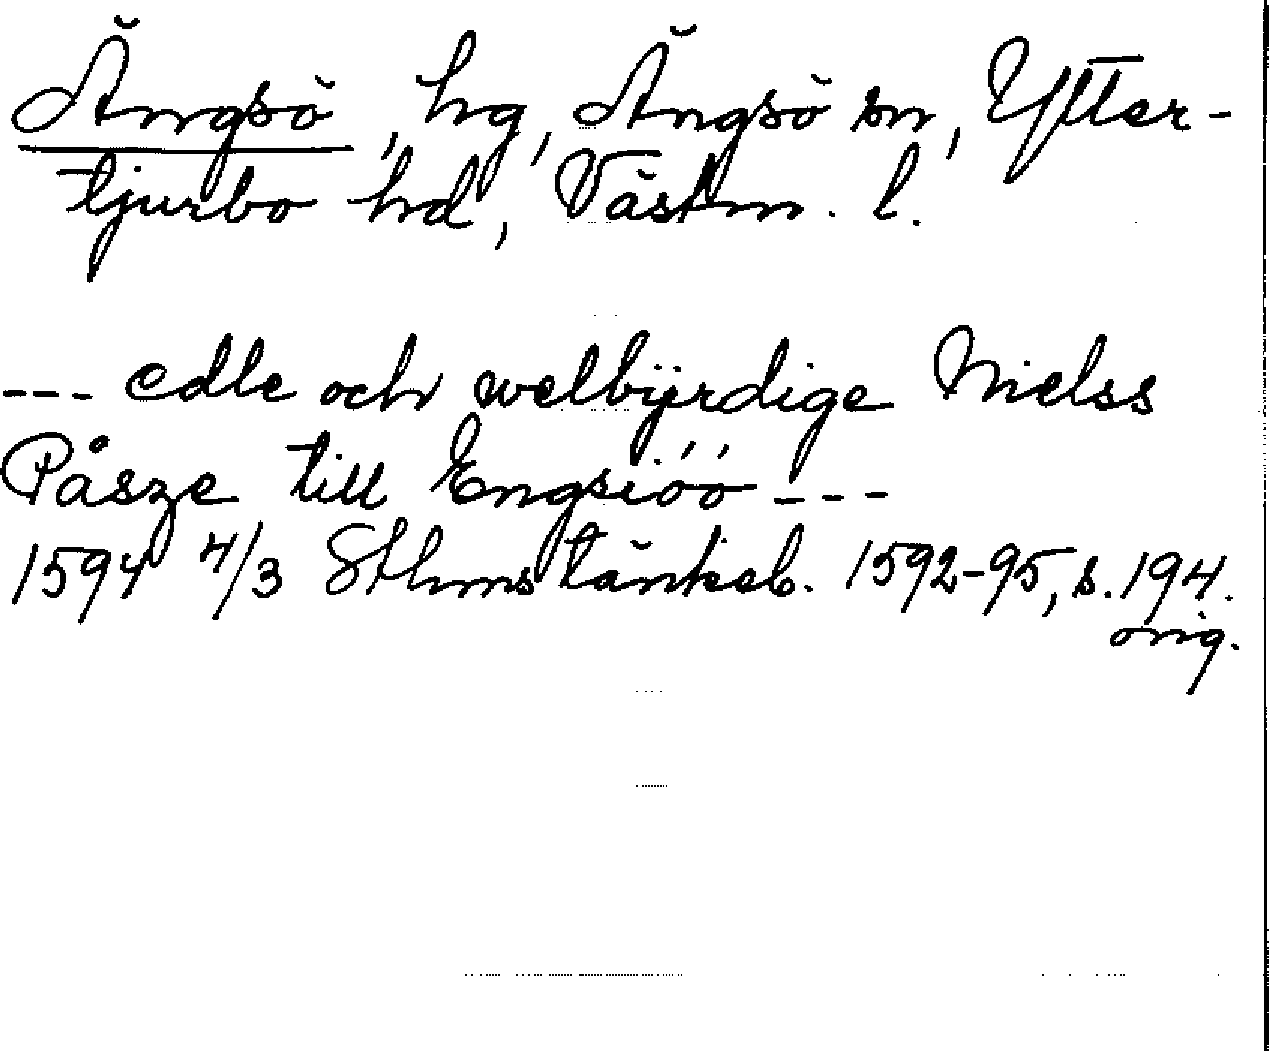 Ängsö, hg, Ängsö sn, Ytter-
tjurbo hd, Västm. l.
--- edle och welbÿrdige Nielss
Påsze till Engsióó ---
1594 4/3 Sthms tänkeb. 1592-95, s. 194.
orig.